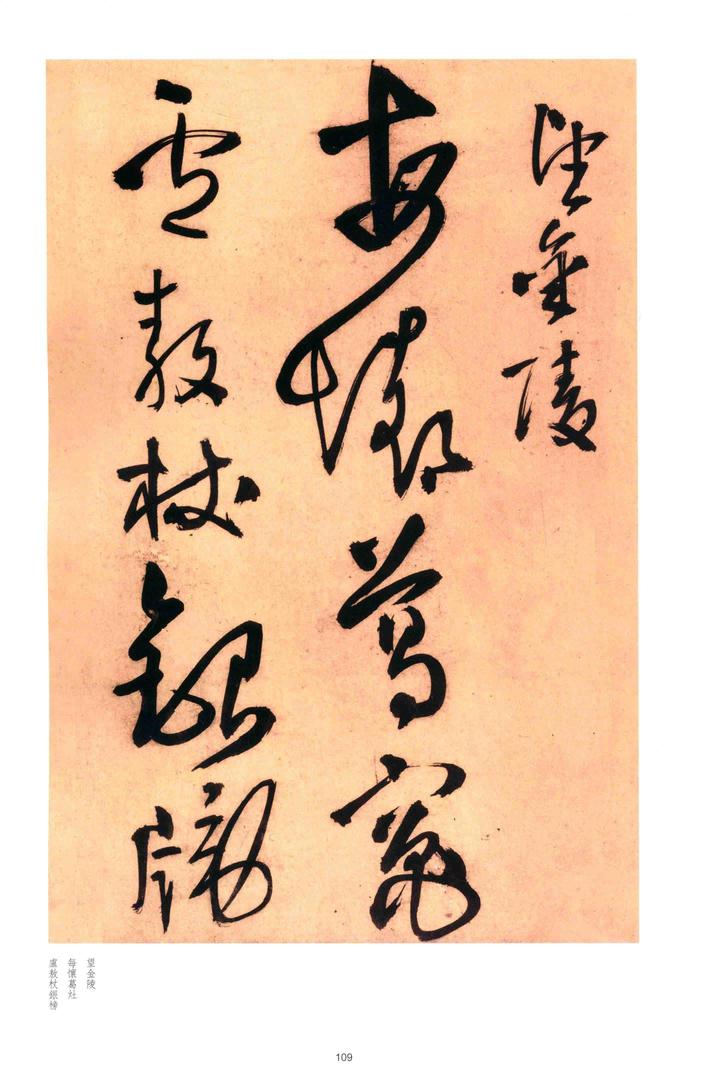 望金陵
每懷葛竈
盧敖杖銀牓
望金陵
每懷葛灶
盧敖杖銀榜
109